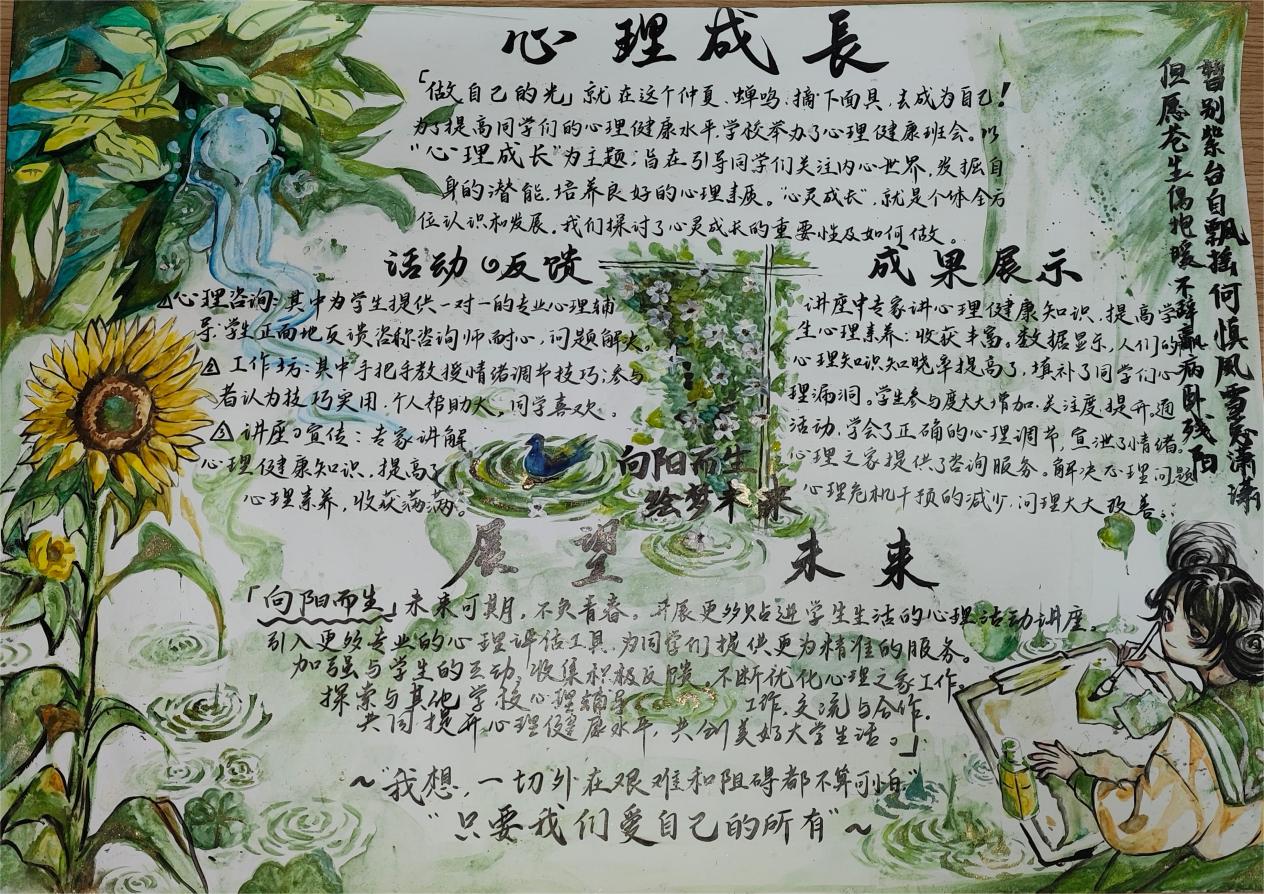 心理成長
「做自己的光」就在这个仲夏、蝉鸣、摘下面具,去成为自己!
为了提高同学们的心理健康水平,学校举办了心理健康班会。以
"心理成长"为主题,旨在引导同学们关注内心世界,发掘自
身的潜能,培养良好的心理素质。"心灵成长",就是个体全方
位认识和发展。我们探讨了心灵成长的重要性及如何做。
暂别紫台自飘摇何惧風雪忽潇潇
但愿苍生俱抱暖不辞羸病卧残阳
活动の反馈
心理咨询:其中为学生提供一对一的专业心理辅
导:学生正面地反馈咨称咨询师耐心,问题解决。
2 工作坊:其中手把手教授情绪调节技巧;参与
者认为技巧实用,个人帮助大,同学喜欢。
3 讲座の宣传:专家讲解
心理健康知识、提高了
心理素养,收获满满。
成果展示
讲座中专家讲心理健康知识,提高学
生心理素养:收获丰富。数据显示,人们的
心理知识知晓率提高了,填补了同学们心
理漏洞。学生参与度大大增加,关注度提升,通
活动,学会了正确的心理调节,宣泄了情绪。
心理之家提供了咨询服务。解决心理问题
心理危机干预的减少,问理大大改善。
向阳而生
绘梦未来
展望未来
「向阳而生」未来可期,不负青春。开展更多贴进学生生活的心理活动讲座。
引入更多专业的心理评估工具,为同学们提供更为精准的服务。
加强与学生的互动,收集积极反馈。不断优化心理之家工作。
探索与其他学校心理辅导工作,交流与合作.
共同提升心理健康水平,共创美好大学生活。」
~"我想,一切外在艰难和阻碍都不算可怕"
"只要我们爱自己的所有"~